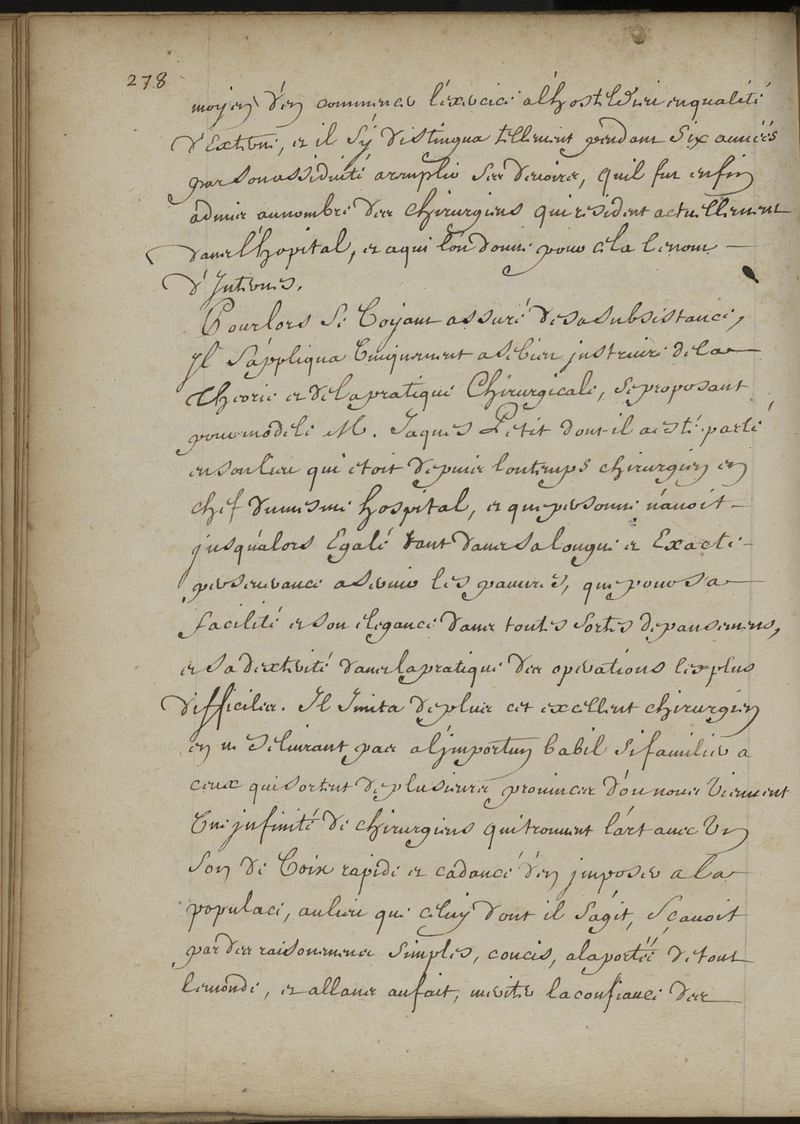 278
moyen d'en commencer l'exercice a l'hostel Dieu en qualité
d'Externe, et il s'y distingua tellement pendant six années
par son assiduité a remplir ses devoirs, qu'il fut enfin
admis au nombre des chirurgiens qui resident actuellement
dans l'hopital, et a qui l'on donne pour cela le nom
d'Internes.
Pour lors se Voyant assuré de sa subsistance,
Il s'appliqua Uniquement a se bien instruire de la
Theorie et de la pratique Chirurgicale, se proposant
pour modele M. Jaques Petit dont il a esté parlé
en son lieu qui etoit depuis lontemps chirurgien en
chef du mesme hospital, et que personne n'avoit
jusqu'alors Egalé tant dans sa longue et Exacte
perseverance a servir les pauvres, que pour sa
facilité et son elegance dans toutes sortes de pansemens,
et sa dexterité dans la pratique des operations les plus
difficiles. Il Imita de plus cet excellent chirurgien
en ne se livrant pas a l'importun babil si familier a
ceux qui sortent de plusieurs provinces d'ou nous Viennent
Une infinité de chirurgiens qui trouvent l'art avec Un
son de Voix rapide et cadancé d'en imposer a la
populace, au lieu que celuy dont il s'agit, sçavoit
par des raisonnemens simples, concis, a la portéé de tout
le monde, et allans au fait, meriter la confiance des